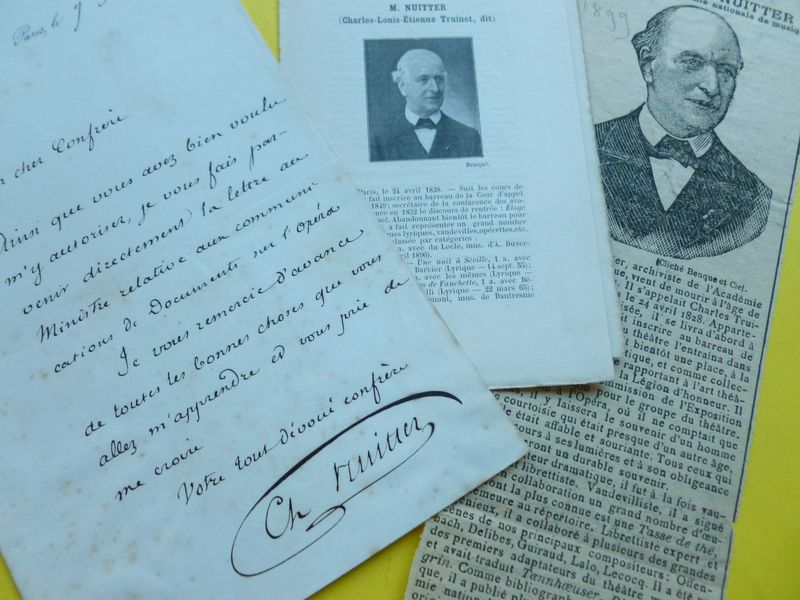 Paris, le 9
cher Confrère
Ainsi que vous avez bien voulu
m'y autoriser, je vous fais par-
venir directement la lettre au
Ministre relative aux communi
cations de Documents sur l'Opéra
Je vous remercie d'avance
de toutes les bonnes choses que vous
allez m'apprendre et vous prie de
me croire
Votre tout dévoué confrère
Ch Nuitter
M. NUITTER
(Charles-Louis-Étienne Truinet, dit)
Benque.
Paris, le 24 avril 1828. — Suit les cours de
fait inscrire au barreau de la Cour d'appel
1849; secrétaire de la conférence des avo-
ence en 1852 le discours de rentrée : Éloge
sel. Abandonnant bientôt le barreau pour
a fait représenter un grand nombre
mes lyriques, vaudevilles, opérettes, etc.
classée par catégories :
a. avec du Locle, mus. d'A. Duver-
1896).
— Une nuit à Séville, 1 a. avec
Barbier (Lyrique — 14 sept. 55);
a. avec les mêmes (Lyrique —
de Fanchette, 1 a. avec
lli (Lyrique — 22 mars 65);
mont, mus. de Dautresme
1899
NUITTER
nationale de musiq
(Cliché Benque et Cie).
er, archiviste de l'Académie
que, vient de mourir à l'âge de
Il s'appelait Charles Trui-
le 24 avril 1828. Apparte-
isée, il se livra d'abord à
it inscrire au barreau de
théâtre l'entraîna dans
bientôt une place, à la
ique, et comme collec-
rapportant à l'art théâ-
mission de l'Exposition
pour le groupe du théâtre.
la Légion d'honneur. Il
à l'Opéra, où il ne comptait que
s, il y laissera le souvenir d'un homme
courtoisie qui était presque d'un autre âge,
té était affable et souriante. Tous ceux qui
cours à ses lumières et à son obligeance
ront un durable souvenir.
eur dramatique, il fut à la fois vau-
librettiste. Vaudevilliste, il a signé
n collaboration un grand nombre d'œu-
ont la plus connue est une Tasse de thé,
emeure au répertoire. Librettiste expert et
énieux, il a collaboré à plusieurs des grandes
cènes de nos principaux compositeurs : Offen-
bach, Delibes, Guiraud, Lalo, Lecocq. Il a été
des premiers adaptateurs du théâtre
et avait traduit Tannhœuser
grin. Comme bibliograph
ue, il a publié plu
mie nation